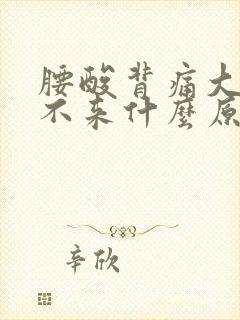 腰酸背痛大
不来什麼原
辛欣